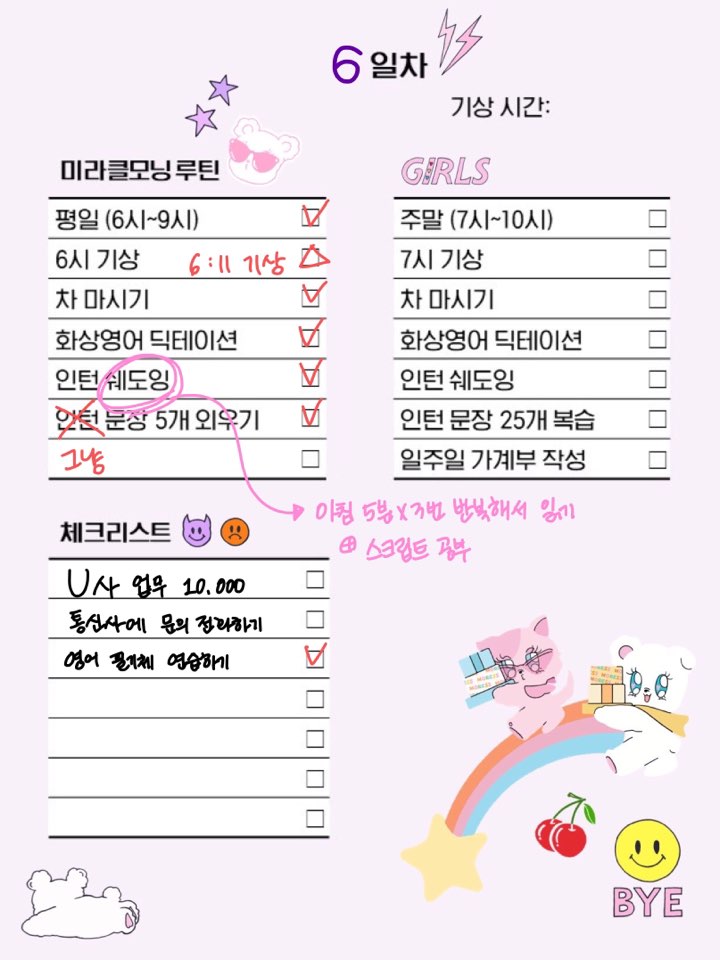 6일차
기상 시간:
미라클모닝 루틴
평일 (6시~9시)
6시 기상 6:11 기상
차 마시기
화상영어 딕테이션
인턴 쉐도잉
인턴 문장 5개 외우기
그냥
GIRLS
주말 (7시~10시)
7시 기상
차 마시기
화상영어 딕테이션
인턴 쉐도잉
인턴 문장 25개 복습
일주일 가계부 작성
아침 5분 x 3번 반복해서 읽기
⊕ 스크립트 공부
체크리스트
U사 업무 10.000
통신사에 문의 전화하기
영어 필기체 연습하기
BYE